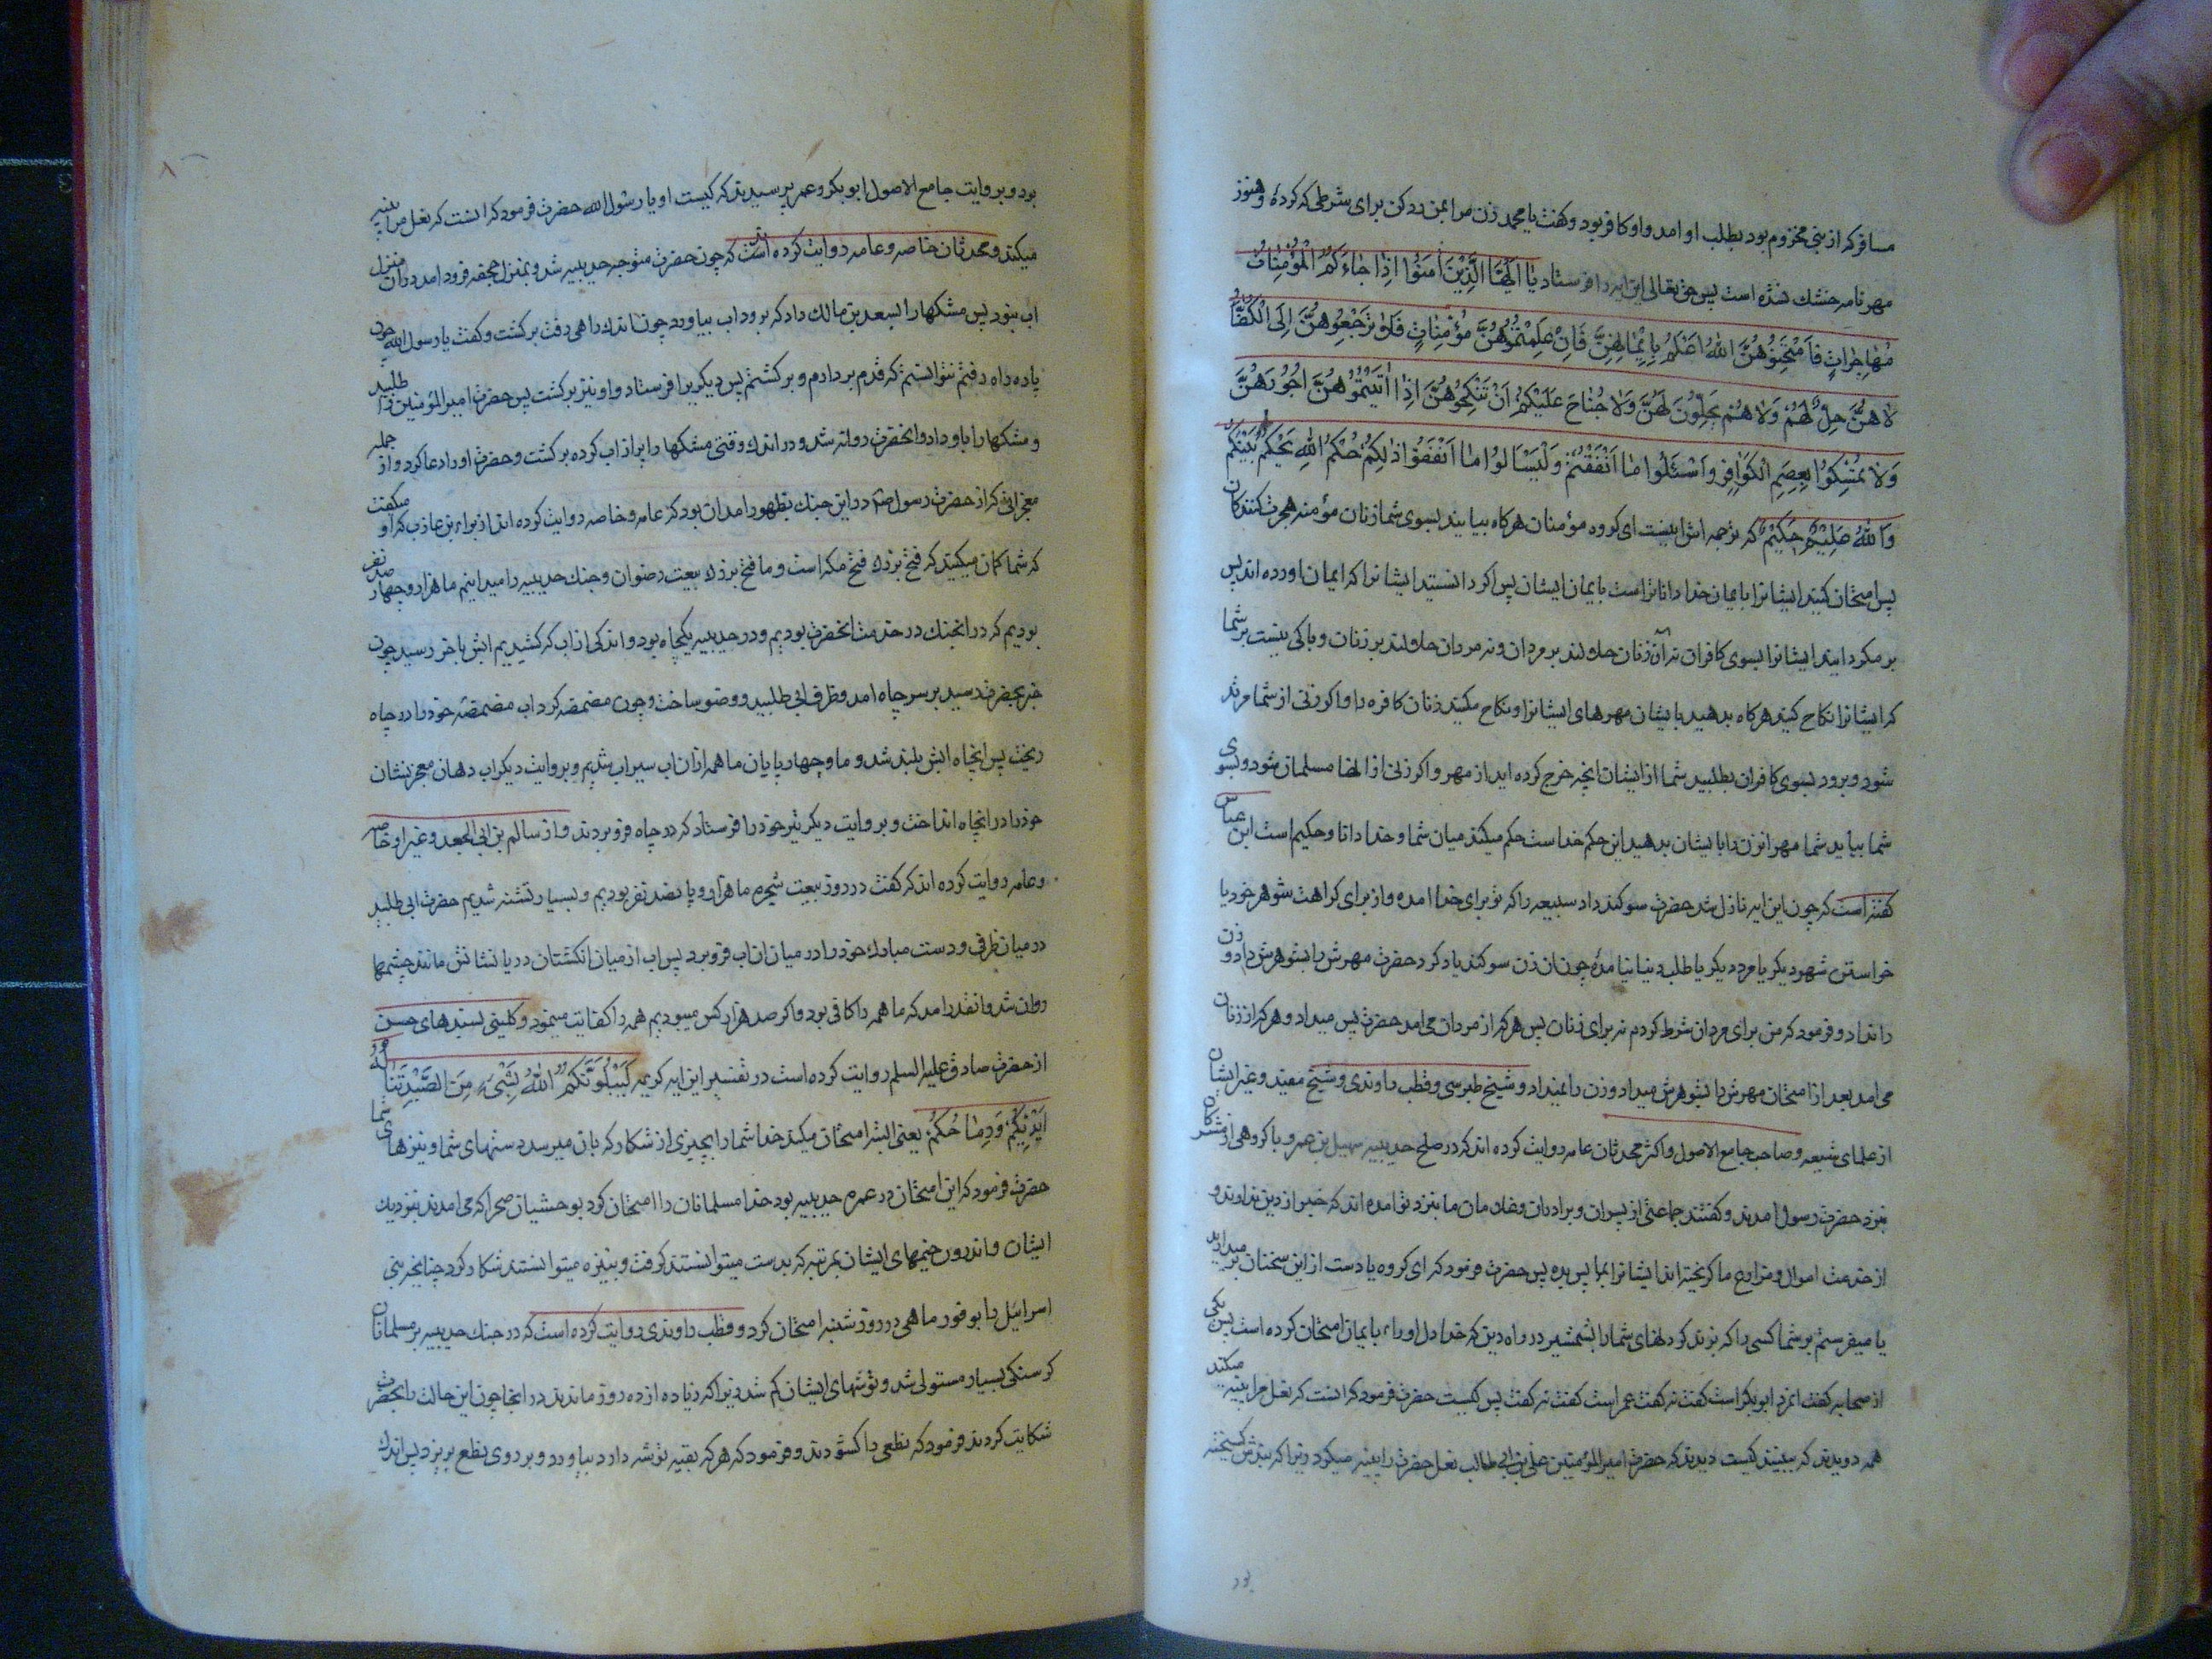 مسافر که از بنی مخزوم بود بطلب او امد و او کافر بود و کفت یا محمد زن مرا بمن رد کن برای شرطی که کردهٔ و هنوز
مهر نامه خشک نشده است پس حق تعالی این ایه را فرستاد یٰا اَیُّهَا الَّذِیْنَ اٰمَنُوْا اِذٰا جٰاءَکُمُ الْمُؤْمِنٰاتُ
مُهٰاجِرٰاتٍ فَامْتَحِنُوْهُنَّ اَللّٰهُ اَعْلَمُ بِاِیْمٰانِهِنَّ فَاِنْ عَلِمْتُمُوْهُنَّ مُؤْمِنٰاتٍ فَلٰا تَرْجِعُوْهُنَّ اِلَی الْکُفّٰارِ
لٰا هُنَّ حِلٌّ لَهُمْ وَلٰا هُمْ یَحِلُّوْنَ لَهُنَّ وَلٰا جُنٰاحَ عَلَیْکُمْ اَنْ تَنْکِحُوْهُنَّ اِذٰا اٰتَیْتُمُوْهُنَّ اُجُوْرَهُنَّ
وَلٰا تُمْسِکُوْا بِعِصَمِ الْکَوٰافِرِ وَاسْئَلُوْا مٰا اَنْفَقْتُمْ وَلْیَسْئَلُوْا مٰا اَنْفَقُوْا ذٰلِکُمْ حُکْمُ اللّٰهِ یَحْکُمُ بَیْنَکُمْ
وَاللّٰهُ عَلِیْمٌ حَکِیْمٌ که ترجمه اش اینست ای کروه مؤمنان هرکاه بیایند بسوی شما زنان مؤمنه هجرت کنندکان
پس امتحان کنید ایشانرا بایمان خدا داناتر است بایمان ایشان پس اکر دانستید ایشانرا که ایمان اورده اند پس
بر مکردانید ایشانرا بسوی کافران نه آن زنان حلالند بر مردان و نه مردان حلالند بر زنان و باکی نیست بر شما
که ایشانرا نکاح کنید هرکاه بدهید بایشان مهرهای ایشانرا و نکاح مکنید زنان کافره را و اکر زنی از شما مرتد
شود و برود بسوی کافران بطلبید شما از ایشان انچه خرج کرده اید از مهر و اکر زنی از انها مسلمان شود و بسوی
شما بیاید شما مهر انزن را بایشان بدهید این حکم خداست حکم میکند میان شما و خدا دانا و حکیم است ابن عباس
کفته است که چون این ایه نازل شد حضرت سوکند داد سبیعه را که تو برای خدا امده و از برای کراهت شوهر خود یا
خواستن شهر دیکر یا مرد دیکر یا طلب دنیا نیامدهٔ چون ان زن سوکند یاد کرد حضرت مهرش را بشوهرش داد و زن
را نداد و فرمود که من برای مردان شرط کردم نه برای زنان پس هرکه از مردان می امد حضرت پس میداد و هرکه از زنان
می امد بعد از امتحان مهرش را بشوهرش میداد و زن را نمیداد و شیخ طبرسی و قطب راوندی و شیخ مفید و غیر ایشان
از علمای شیعه و صاحب جامع الاصول و اکثر محدثان عامه روایت کرده اند که در صلح حدیبیه سهیل بن عمرو با کروهی از مشرکان
بنزد حضرت رسول امدند و کفتند جماعتی از پسران و برادران و غلامان ما بنزد تو امده اند که خبر از دین ندارند و
از خدمت اموال و مزارع ما کریخته اند ایشانرا بما پس بده پس حضرت فرمود که ای کروه یا دست از این سخنان بر میدارید
یا میفرستم بر شما کسی را که بزند کردنهای شما را بشمشیر در راه دین که خدا دل او را بایمان امتحان کرده است پس یکی
از صحابه کفت انمرد ابوبکر است کفت نه کفت عمر است کفت نه کفت پس کیست حضرت فرمود که انست که نعل مرا پینه میکند
همه دویدند که ببینند کیست دیدند که حضرت امیر المؤمنین علی بن ابی طالب نعل حضرت را پینه میکرد زیرا که بندش کسیخته
بود
بود و بروایت جامع الاصول ابوبکر و عمر پرسیدند که کیست او یا رسول الله حضرت فرمود که انست که نعل مرا پینه
میکند و محدثان خاصه و عامه روایت کرده است که چون حضرت متوجه حدیبیه شد و بمنزل جحفه فرود امد در ان منزل
اب نبود پس مشکها را بسعد بن مالک داد که برود اب بیاورد چون اندک راهی رفت برکشت و کفت یا رسول الله چون
پاره راه رفتم نتوانستم که قدم بردارم و برکشتم پس دیکریرا فرستاد و او نیز برکشت پس حضرت امیر المؤمنین را طلبید
و مشکها را باو داد و انحضرت روانه شد و در اندک وقتی مشکها را پر از اب کرده برکشت و حضرت او را دعا کرد و از جمله
معجزاتی که از حضرت رسول ص در این جنک بظهور امد ان بود که عامه و خاصه روایت کرده اند از براء بن عازب که او میکفت
که شما کمان میکنید که فتح بزرک فتح مکه است و ما فتح بزرک بیعت رضوان و جنک حدیبیه را میدانیم ما هزار و چهار صد نفر
بودیم که در انجنک در خدمت انحضرت بودیم و در حدیبیه یکچاه بود و اندکی از اب که کشیدیم ابش باخر رسید چون
خبر بحضرت رسید بر سر چاه امد و ظرف ابی طلبید و وضو ساخت و چون مضمضه کرد اب مضمضه خود را در چاه
ریخت پس انچاه ابش بلند شد و ما و چهار پایان ما همه از ان اب سیراب شدیم و بروایت دیکر اب دهان معجز نشان
خود را در انچاه انداخت و بروایت دیکر تیر خود را فرستاد که در چاه فرو بردند و از سالم بن ابی الجعد و غیر او خاصه
و عامه روایت کرده اند که کفت در روز بیعت شجره ما هزار و پانصد نفر بودیم و بسیار تشنه شدیم حضرت ابی طلبید
در میان ظرفی و دست مبارک خود را در میان ان اب فرو برد پس اب از میان انکشتان دریا نشانش مانند چشمها
روان شد و انقدر امد که ما همه را کافی بود و اکر صد هزار کس میبودیم همه را کفایت مینمود و کلینی بسندهای حسن
از حضرت صادق علیه السلم روایت کرده است در تفسیر این ایه کریمه لَیَبْلُوَنَّکُمُ اللّٰهُ بِشَیْءٍ مِنَ الصَّیْدِ تَنٰالُهُ
اَیْدِیْکُمْ وَرِمٰاحُکُمْ یعنی البته امتحان میکند خدا شما را بچیزی از شکار که بان میرسد دستهای شما و نیزهای شما
حضرت فرمود که این امتحان در عمره حدیبیه بود خدا مسلمانان را امتحان کرد بوحشیان صحرا که می امدند بنزدیک
ایشان و اندرون خیمهای ایشان بمرتبه که بدست میتوانستند کرفت و بنیزه میتوانستند شکار کرد چنانچه بنی
اسرائیل را بوفور ماهی در روز شنبه امتحان کرد و قطب راوندی روایت کرده است که در جنک حدیبیه بر مسلمانان
کرسنکی بسیار مستولی شد و توشهای ایشان کم شد زیرا که زیاده از ده روز ماندند در انجا چون این حالت را بحضرت
شکایت کردند فرمود که نطعی را کشودند و فرمود که هرکه بقیه توشه دارد بیاورد و بر روی نطع بریزد پس اندک